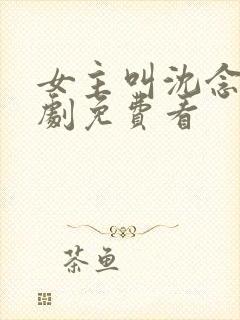 女主叫沈念
劇免費看
茶鱼